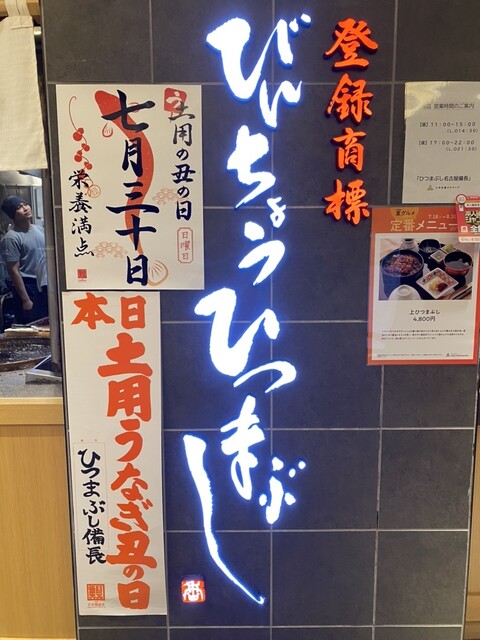 登録商標
びんちょうひつまぶし
土用の丑の日
七月三十日
日曜日
栄養満点
本日
土用うなぎ丑の日
ひつまぶし備長
営業時間のご案内
11:00~15:00
17:00~22:00
「ひつまぶし名古屋備長」
夏グルメ
定番メニュー
上ひつまぶし
4,800円